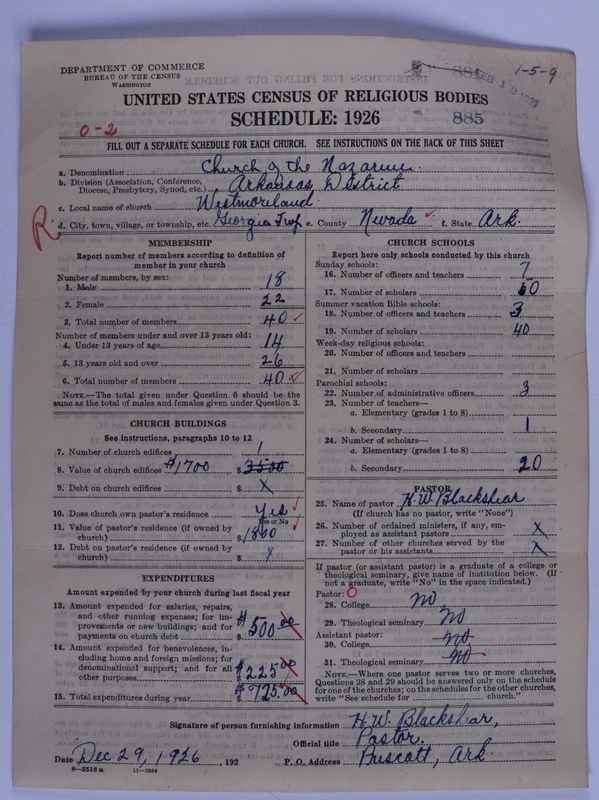 DEPARTMENT OF COMMERCE
BUREAU OF THE CENSUS
WASHINGTON
885
1-5-9
FEB 12 1927
UNITED STATES CENSUS OF RELIGIOUS BODIES
SCHEDULE: 1926
885
0-2
FILL OUT A SEPARATE SCHEDULE FOR EACH CHURCH. SEE INSTRUCTIONS ON THE BACK OF THIS SHEET
a. Denomination Church of the Nazarene
b. Division (Association, Conference,
Diocese, Presbytery, Synod, etc.) Arkansas District
c. Local name of church Westmoreland
R. d. City, town, village, or township, etc. Georgia Twp e. County Nevada f. State Ark.
MEMBERSHIP
Report number of members according to definition of
member in your church
Number of members, by sex:
1. Male 18
2. Female 22
3. Total number of members 40
Number of members under and over 13 years old:
4. Under 13 years of age 14
5. 13 years old and over 26
6. Total number of members 40
NOTE.—The total given under Question 6 should be the
same as the total of males and females given under Question 3.
CHURCH BUILDINGS
See instructions, paragraphs 10 to 12
7. Number of church edifices 1
8. Value of church edifices $1700 $ 3500
9. Debt on church edifices $ X
10. Does church own pastor's residence Yes
Yes or No
11. Value of pastor's residence (if owned by
church) $1800
12. Debt on pastor's residence (if owned by
church) $
EXPENDITURES
Amount expended by your church during last fiscal year
13. Amount expended for salaries, repairs,
and other running expenses; for im-
provements or new buildings; and for
payments on church debt $ 500 00
14. Amount expended for benevolences, in-
cluding home and foreign missions; for
denominational support; and for all
other purposes $ 225 00
15. Total expenditures during year $ 725 00
CHURCH SCHOOLS
Report here only schools conducted by this church
Sunday schools:
16. Number of officers and teachers 7
17. Number of scholars 60
Summer vacation Bible schools:
18. Number of officers and teachers 3
19. Number of scholars 40
Week-day religious schools:
20. Number of officers and teachers
21. Number of scholars
Parochial schools:
22. Number of administrative officers 3
23. Number of teachers—
a. Elementary (grades 1 to 8)
b. Secondary 1
24. Number of scholars—
a. Elementary (grades 1 to 8)
b. Secondary 20
PASTOR
25. Name of pastor H. W. Blackshear
(If church has no pastor, write "None")
26. Number of ordained ministers, if any, em-
ployed as assistant pastors X
27. Number of other churches served by the
pastor or his assistants X
If pastor (or assistant pastor) is a graduate of a college or
theological seminary, give name of institution below. (If
not a graduate, write "No" in the space indicated.)
Pastor: 0
28. College No
29. Theological seminary No
Assistant pastor:
30. College No
31. Theological seminary No
NOTE.—Where one pastor serves two or more churches,
Questions 28 and 29 should be answered only on the schedule
for one of the churches; on the schedules for the other churches,
write "See schedule for church."
Signature of person furnishing information H. W. Blackshear,
Official title Pastor.
Date Dec 29, 1926, 192 P. O. Address Prescott, Ark.
8—5518 a 11—9554